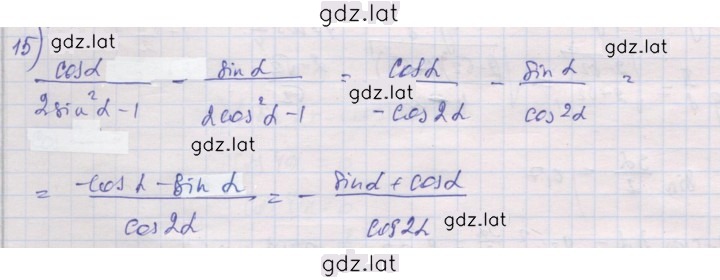 gdz.lat
15) gdz.lat gdz.lat
cosα/(2sin²α-1) - sinα/(2cos²α-1) = cosα/(-cos2α) - sinα/(cos2α) =
gdz.lat
gdz.lat
= (-cosα - sinα)/(cos2α) = - (sinα + cosα)/(cos2α)
gdz.lat
gdz.lat